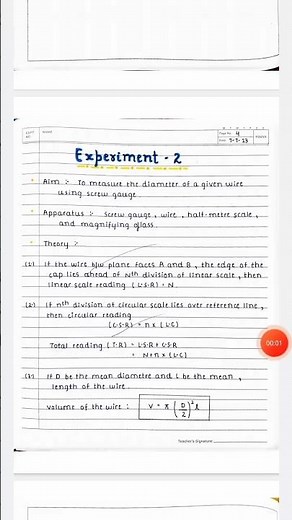 Page No. 4
Date 5-5-23
Experiment - 2
Aim :- To measure the diameter of a given wire
using screw gauge.
Apparatus :- Screw gauge, wire, half-metre scale,
and magnifying glass.
Theory :-
(1) If the wire b/w plane faces A and B, the edge of the
cap lies ahead of Nth division of linear scale, then
linear scale reading (L.S.R) = N.
(2) If nth division of circular scale lies over reference line,
then circular reading
(C.S.R) = n x (L.C)
00:01
Total reading (T.R) = L.S.R + C.S.R
= N+n x (L.C)
(3) If D be the mean diametre and l be the mean,
length of the wire.
Volume of the wire : V = π (D/2)² l
Teacher's Signature